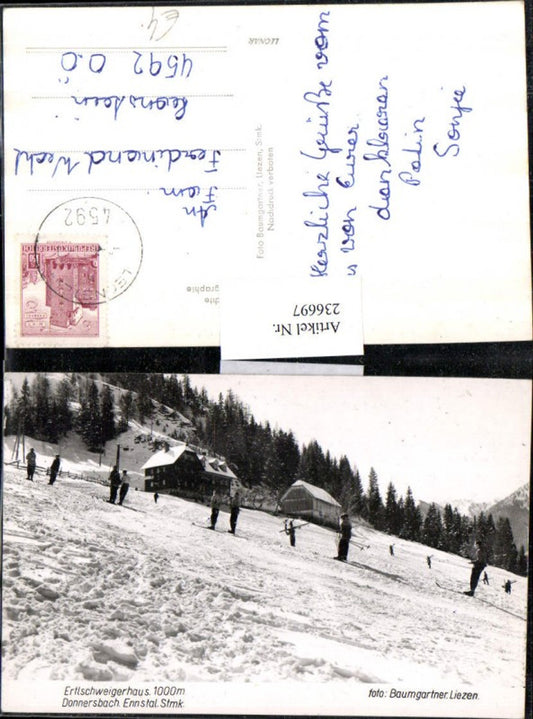 Herzliche Grüße vom
u von Eurer
dankbaren
Patin
Sonja
LEONAR
Foto Baumgartner, Liezen, Stmk.
Nachdruck verboten
An
Fam
Ferdinand Wechl
Leonstein
4592 O.Ö
4592
REPUBLIK ÖSTERREICH
Artikel Nr.
236697
Ertlschweigerhaus. 1000m
Donnersbach. Ennstal. Stmk.
foto: Baumgartner. Liezen.